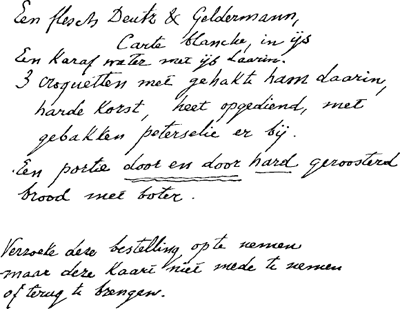 Een flesch Deutz & Geldermann,
Carte blanche, in ijs
Een Karaf water met ijs daarin.
3 croquetten met gehakte ham daarin,
harde korst, heet opgediend, met
gebakken peterselie er bij.
Een portie door en door hard geroosterd
brood met boter.
Verzoeke deze bestelling op te nemen
maar deze Kaart niet mede te nemen
of terug te brengen.